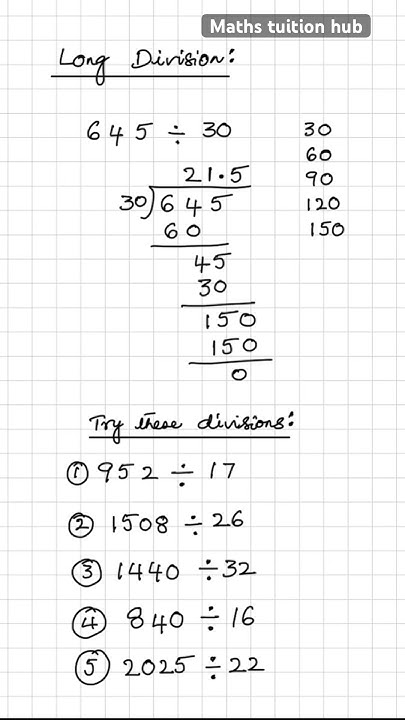 Maths tuition hub
Long Division:
645 ÷ 30
30
60
90
120
150
21.5
30)645
60
45
30
150
150
0
Try these divisions:
① 952 ÷ 17
② 1508 ÷ 26
③ 1440 ÷ 32
④ 840 ÷ 16
⑤ 2025 ÷ 22